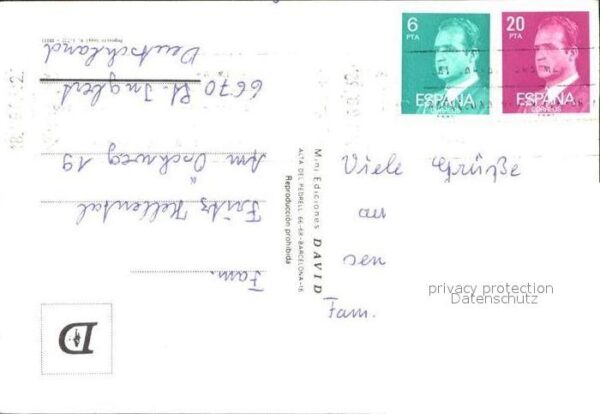 6
PTA
ESPAÑA
20
PTA
ESPAÑA
CORREOS
Viele Grüße
an
den
Fam.
privacy protection
Datenschutz
Mini Ediciones DAVID
ALTA DEL PEDRELL 66-68-BARCELONA-16
Reproducción prohibida
Fam.
Fritz Kellental
Am Ochweg 19
6670 St. Ingbert
Deutschland
D